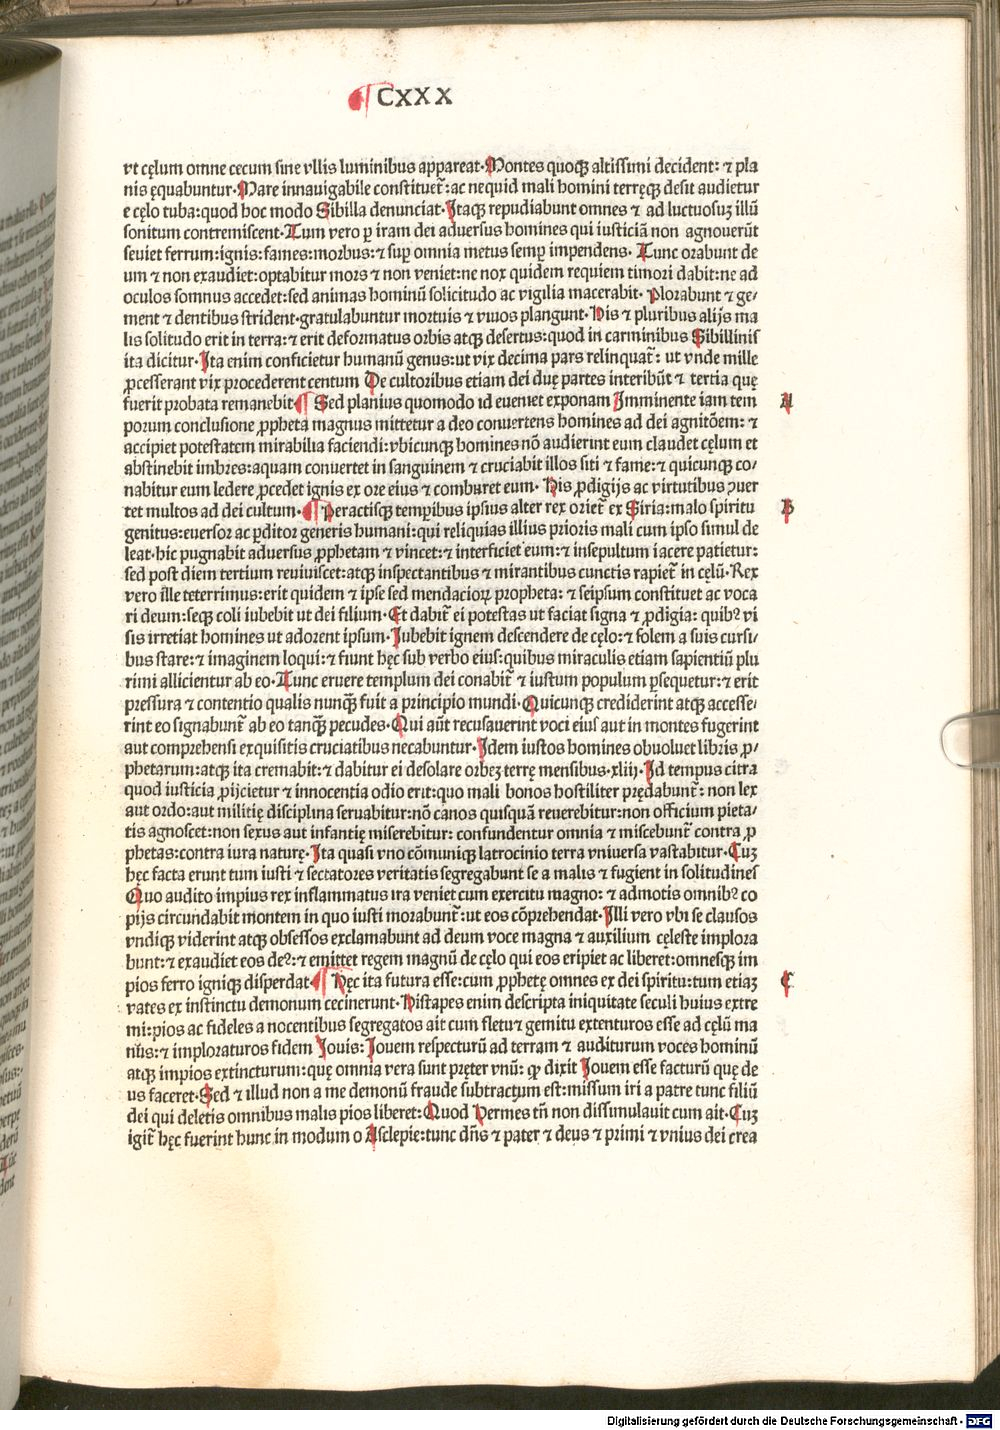 CXXX
vt cęlum omne cecum sine vllis luminibus appareat·Montes quoqꝫ altissimi decident: ⁊ pla
nis ęquabuntur·Mare innauigabile constituet᷑: ac nequid mali homini terręqꝫ desit audietur
e cęlo tuba:quod hoc modo Sibilla denunciat·Itaqꝫ repudiabunt omnes ⁊ ad luctuosuꝫ illū
sonitum contremiscent·Tum vero ꝑ iram dei aduersus homines qui iusticiā non agnouerūt
seuiet ferrum:ignis:fames:morbus:⁊ suꝑ omnia metus semꝑ impendens· Tunc orabunt de
um ⁊ non exaudiet:optabitur mors ⁊ non veniet:ne nox quidem requiem timori dabit:ne ad
oculos somnus accedet:sed animas hominū solicitudo ac vigilia macerabit· Plorabunt ⁊ ge⸗
ment ⁊ dentibus strident·gratulabuntur mortuis ⁊ viuos plangunt· His ⁊ pluribus alijs ma
lis solitudo erit in terra:⁊ erit deformatus orbis atqꝫ desertus:quod in carminibus Sibillinis
ita dicitur·Ita enim conficietur humanū genus:ut vix decima pars relinquat᷑: ut vnde mille
ꝓcesserant vix procederent centum De cultoribus etiam dei duę partes interibūt ⁊ tertia quę
fuerit probata remanebit ¶ Sed planius quomodo id eueniet exponam Imminente iam tem
porum conclusione ꝓpheta magnus mittetur a deo conuertens homines ad dei agnitōem: ⁊
accipiet potestatem mirabilia faciendi:vbicunqꝫ homines nō audierint eum claudet cęlum et
abstinebit imbres:aquam conuertet in sanguinem ⁊ cruciabit illos siti ⁊ fame:⁊ quicunqꝫ co⸗
nabitur eum ledere ꝓcedet ignis ex ore eius ⁊ comburet eum· His ꝓdigijs ac virtutibus ꝯuer
tet multos ad dei cultum·¶ Peractisqꝫ temꝑibus ipsius alter rex oriet᷑ ex Siria:malo spiritu
genitus:euersor ac ꝑditor generis humani:qui reliquias illius prioris mali cum ipso simul de
leat·hic pugnabit aduersus ꝓphetam ⁊ vincet:⁊ interficiet eum:⁊ insepultum iacere patietur:
sed post diem tertium reuiuiscet:atqꝫ inspectantibus ⁊ mirantibus cunctis rapiet᷑ in cęlū·Rex
vero ille teterrimus:erit quidem ⁊ ipse sed mendacioꝝ propheta: ⁊ seipsum constituet ac voca
ri deum:seqꝫ coli iubebit ut dei filium·Et dabit᷑ ei potestas ut faciat signa ⁊ ꝓdigia: quibꝰ vi
sis irretiat homines ut adorent ipsum·Iubebit ignem descendere de cęlo:⁊ solem a suis cursi⸗
bus stare:⁊ imaginem loqui:⁊ fiunt hęc sub verbo eius:quibus miraculis etiam sapientiū plu
rimi allicientur ab eo·Tunc eruere templum dei conabit᷑ ⁊ iustum populum ꝑsequetur:⁊ erit
pressura ⁊ contentio qualis nunqꝫ̄ fuit a principio mundi·Quicunqꝫ crediderint atqꝫ accesse⸗
rint eo signabunt᷑ ab eo tanqꝫ̄ pecudes·Qui aūt recusauerint voci eius aut in montes fugerint
aut comprehensi exquisitis cruciatibus necabuntur·Idem iustos homines obuoluet libris ꝓ⸗
phetarum:atqꝫ ita cremabit:⁊ dabitur ei desolare orbeꝫ terrę mensibus·xlij·Id tempus citra
quod iusticia ꝓijcietur ⁊ innocentia odio erit:quo mali bonos hostiliter prędabunt᷑: non lex
aut ordo:aut militię disciplina seruabitur:nō canos quisquā reuerebitur:non officium pieta⸗
tis agnoscet:non sexus aut infantię miserebitur: confundentur omnia ⁊ miscebunt᷑ contra ꝓ
phetas:contra iura naturę·Ita quasi vno cōmuniqꝫ latrocinio terra vniuersa vastabitur·Cuꝫ
hęc facta erunt tum iusti ⁊ sectatores veritatis segregabunt se a malis ⁊ fugient in solitudines
Quo audito impius rex inflammatus ira veniet cum exercitu magno: ⁊ admotis omnibꝰ co
pijs circundabit montem in quo iusti morabunt᷑:ut eos cōprehendat·Illi vero vbi se clausos
vndiqꝫ viderint atqꝫ obsessos exclamabunt ad deum voce magna ⁊ auxilium cęleste implora
bunt:⁊ exaudiet eos deꝰ:⁊ emittet regem magnū de cęlo qui eos eripiet ac liberet:omnesqꝫ im
pios ferro igniqꝫ disperdat ¶ Hęc ita futura esse:cum ꝓphetę omnes ex dei spiritu:tum etiaꝫ
vates ex instinctu demonum cecinerunt·Histapes enim descripta iniquitate seculi huius extre
mi:pios ac fideles a nocentibus segregatos ait cum fletu⁊ gemitu extenturos esse ad cęlū ma
nus:⁊ imploraturos fidem Iouis:Iouem respecturū ad terram ⁊ auditurum voces hominū
atqꝫ impios extincturum:quę omnia vera sunt pręter vnū: ꝙ dixit Iouem esse facturū quę de
us faceret·Sed ⁊ illud non a me demonū fraude subtractum est:missum iri a patre tunc filiū
dei qui deletis omnibus malis pios liberet:Quod Hermes tn̄ non dissimulauit cum ait·Cuꝫ
igit᷑ hęc fuerint hunc in modum o Asclepie:tunc dn̄s ⁊ pater ⁊ deus ⁊ primi ⁊ vnius dei crea
A
B
C
Digitalisierung gefördert durch die Deutsche Forschungsgemeinschaft - DFG